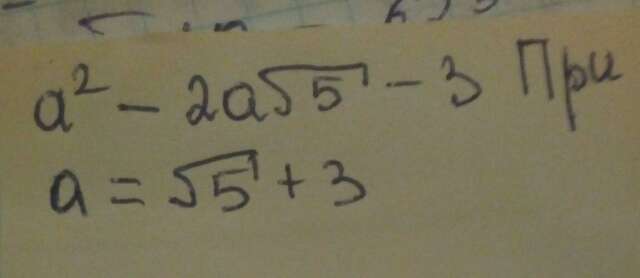 a² − 2a√5 − 3 При
a = √5 + 3